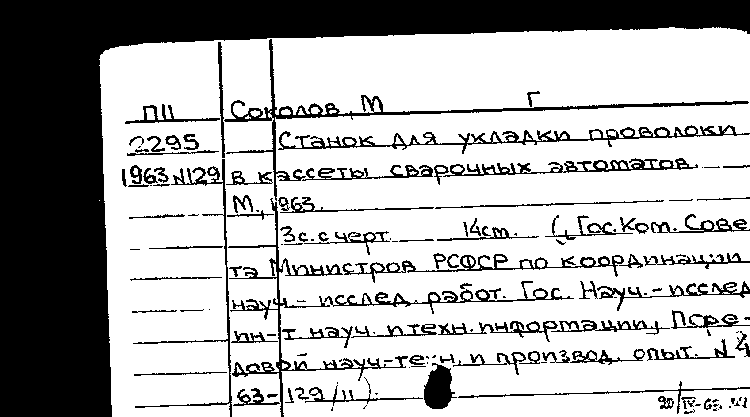 П11 Соколов, М Г
2295 Станок для укладки проволоки
1963 №129 в кассеты сварочных автоматов.
М., 1963.
3 с. с черт. 14 см. (Гос. Ком. Сове-
та Министров РСФСР по координации
науч.- исслед. работ. Гос. Науч.- исслед
ин-т. науч. и техн. информации, Пере-
довой науч.-техн. и производ. опыт. №4
63-129/11)